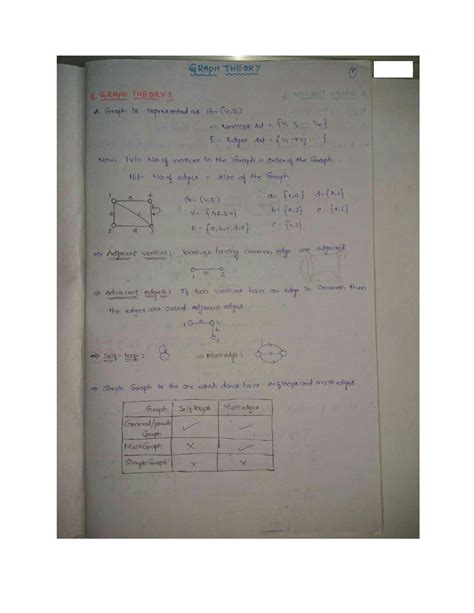 GRAPH THEORY
1. GRAPH THEORY:
A Graph is represented as G = (V, E)
V = Vertices set = {V₁ V₂ ... Vₙ}
E = Edges set = {
Now |V| = No of vertices in the Graph = order of the Graph
|E| = No of edges = size of the Graph
G = (V,E)
V = {1,2,3,4}
E = {a,b,c,d,e}
⇒ Adjacent vertices: Vertices having common edge are adjacent
1 2
⇒ Adjacent edges: If two vertices have an edge in common then
the edges are called Adjacent edges.
⇒ Self-loop: ⇒ Multiedge:
⇒ Simple Graph is the one which donot have selfloops and multiedges.
Graph Selfloops Multiedges
General/pseudo Graph ✓ ✓
MultiGraph × ✓
Simple Graph × ×